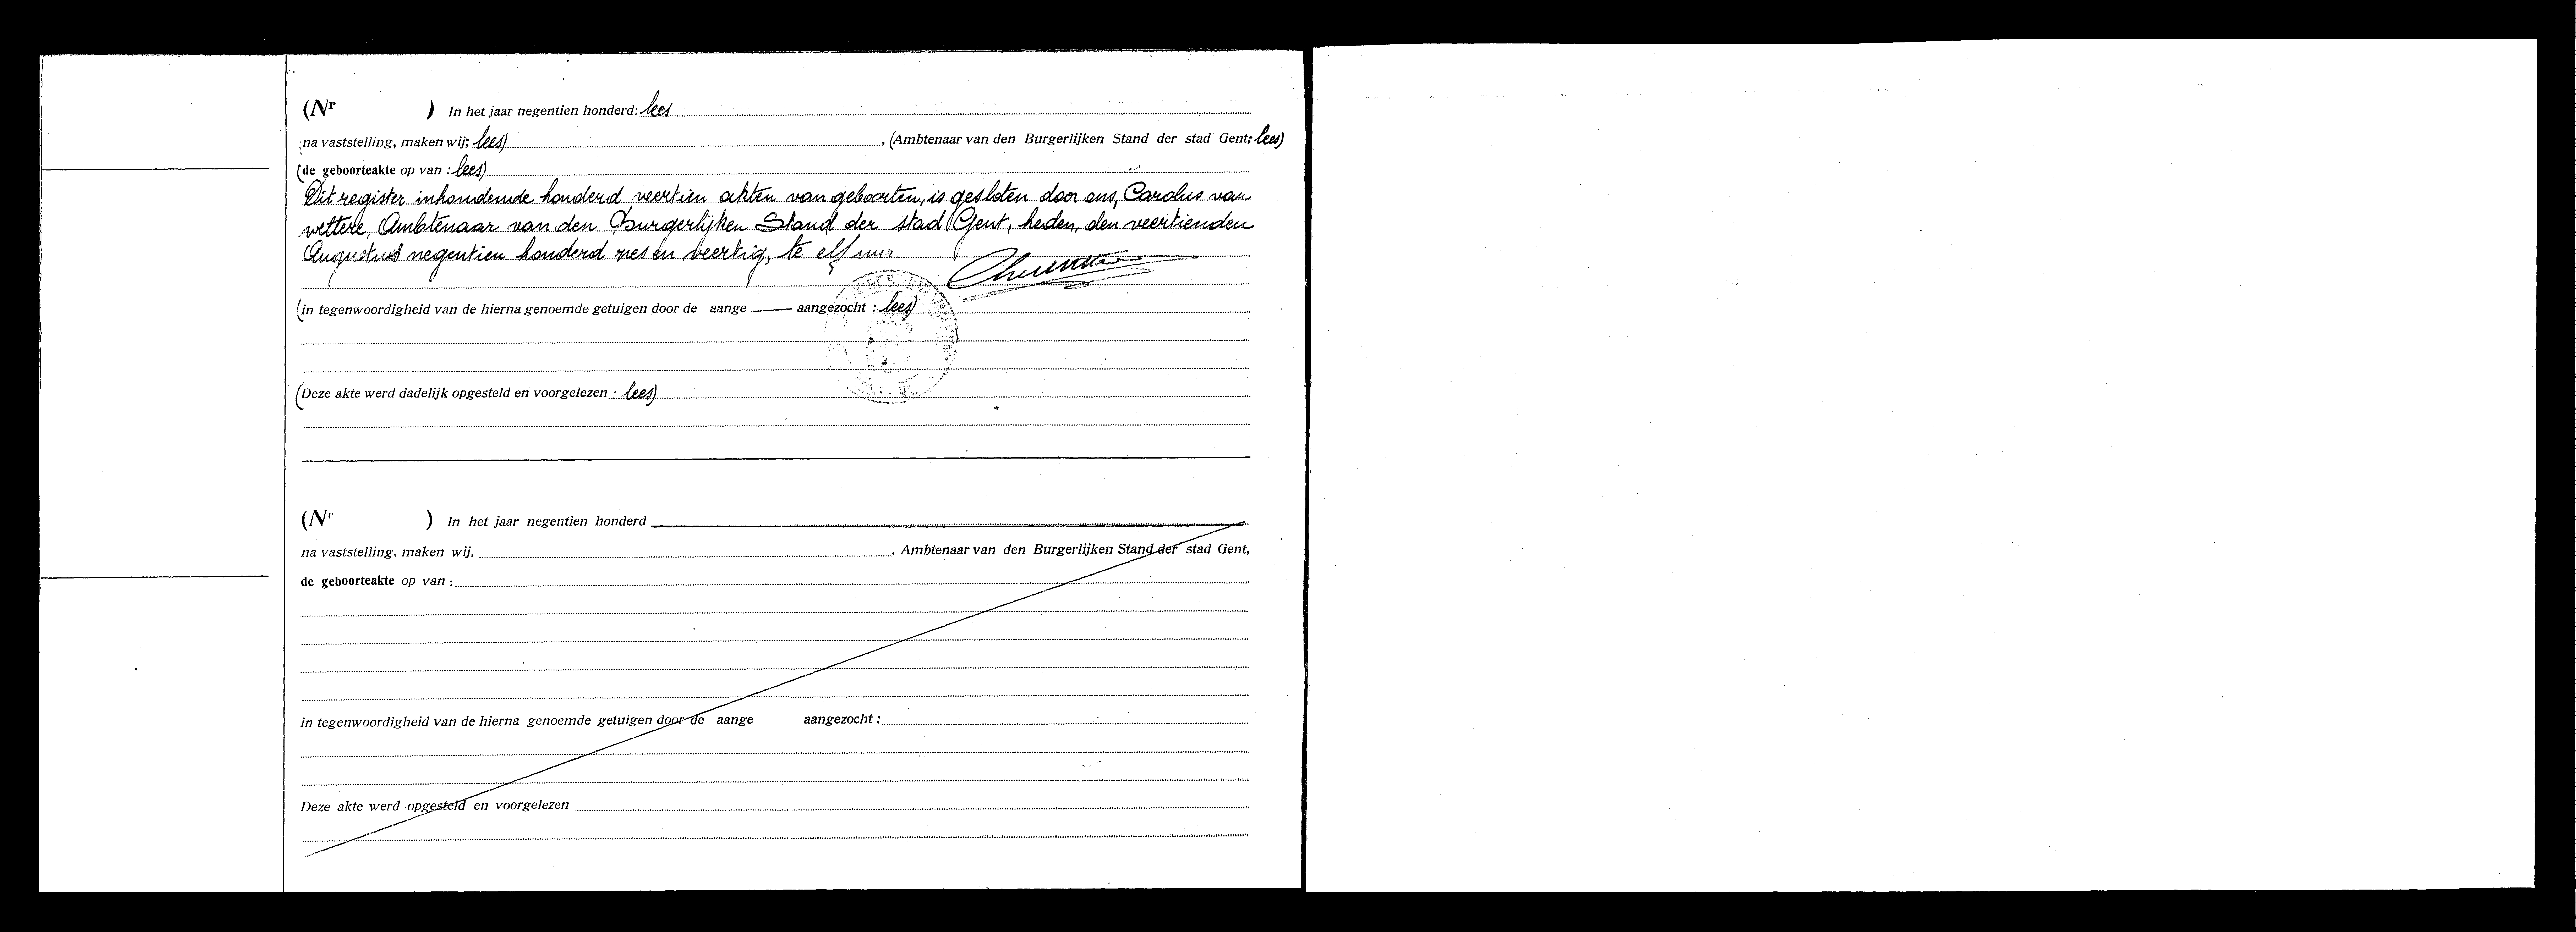 (Nr ) In het jaar negentien honderd: lees
na vaststelling, maken wij; lees) , (Ambtenaar van den Burgerlijken Stand der stad Gent; lees)
(de geboorteakte op van : lees)
Dit register inhoudende honderd veertien akten van geboorten, is gesloten door ons, Carolus van
wettere, Ambtenaar van den Burgerlijken Stand der stad Gent, heden, den veertienden
Augustus negentien honderd zes en veertig, te elf uur
(in tegenwoordigheid van de hierna genoemde getuigen door de aange—— aangezocht : lees)
(Deze akte werd dadelijk opgesteld en voorgelezen : lees)
(Nr ) In het jaar negentien honderd
na vaststelling, maken wij, , Ambtenaar van den Burgerlijken Stand der stad Gent,
de geboorteakte op van :
in tegenwoordigheid van de hierna genoemde getuigen door de aange aangezocht :
Deze akte werd opgesteld en voorgelezen